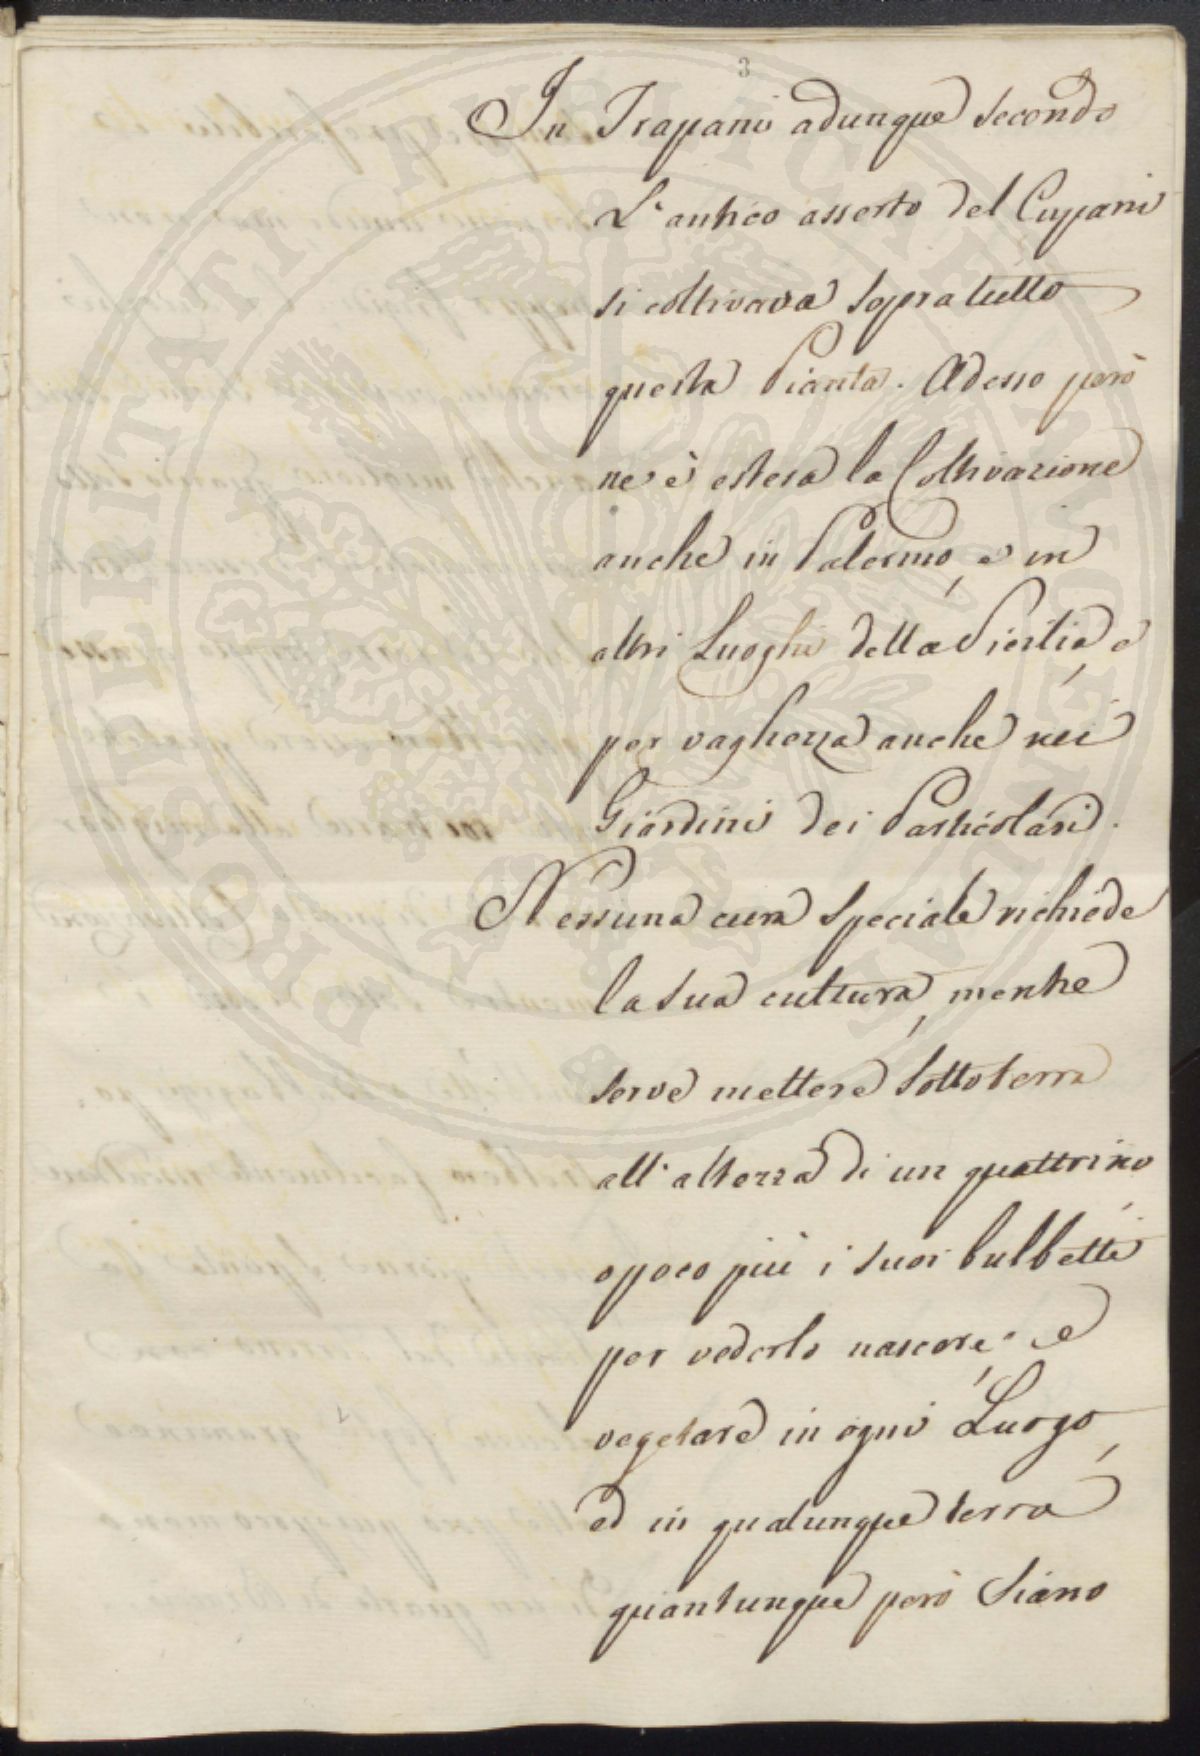 3
In Trapani adunque secondo
L'antico asserto del Cupani
si coltivava sopratutto
questa Pianta. Adesso però
ne è estesa la Coltivazione
anche in Palermo, e in
altri Luoghi della Sicilia, e
per vaghezza anche nei
Giardini dei Particolari.
Nessuna cura speciale richiede
la sua cultura, mentre
serve mettere sottoterra
all'altezza di un quattrino,
opoco più i suoi bulbetti
per vederlo nascere, e
vegetare in ogni Luogo,
ed in qualunque terra
quantunque però siano